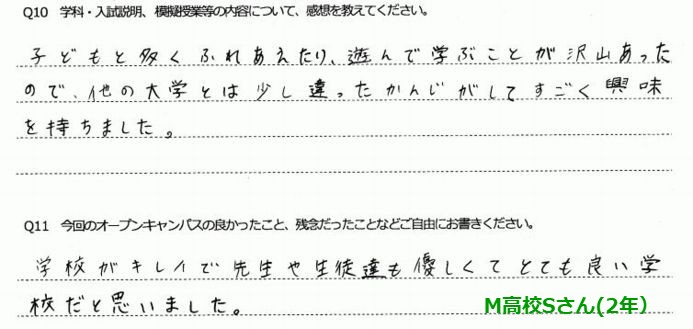 Q10 学科・入試説明、模擬授業等の内容について、感想を教えてください。
子どもと多くふれあえたり、遊んで学ぶことが沢山あった
ので、他の大学とは少し違ったかんじがしてすごく興味
を持ちました。
Q11 今回のオープンキャンパスの良かったこと、残念だったことなどご自由にお書きください。
学校がキレイで先生や生徒達も優しくてとても良い学
校だと思いました。
M高校Sさん(2年）